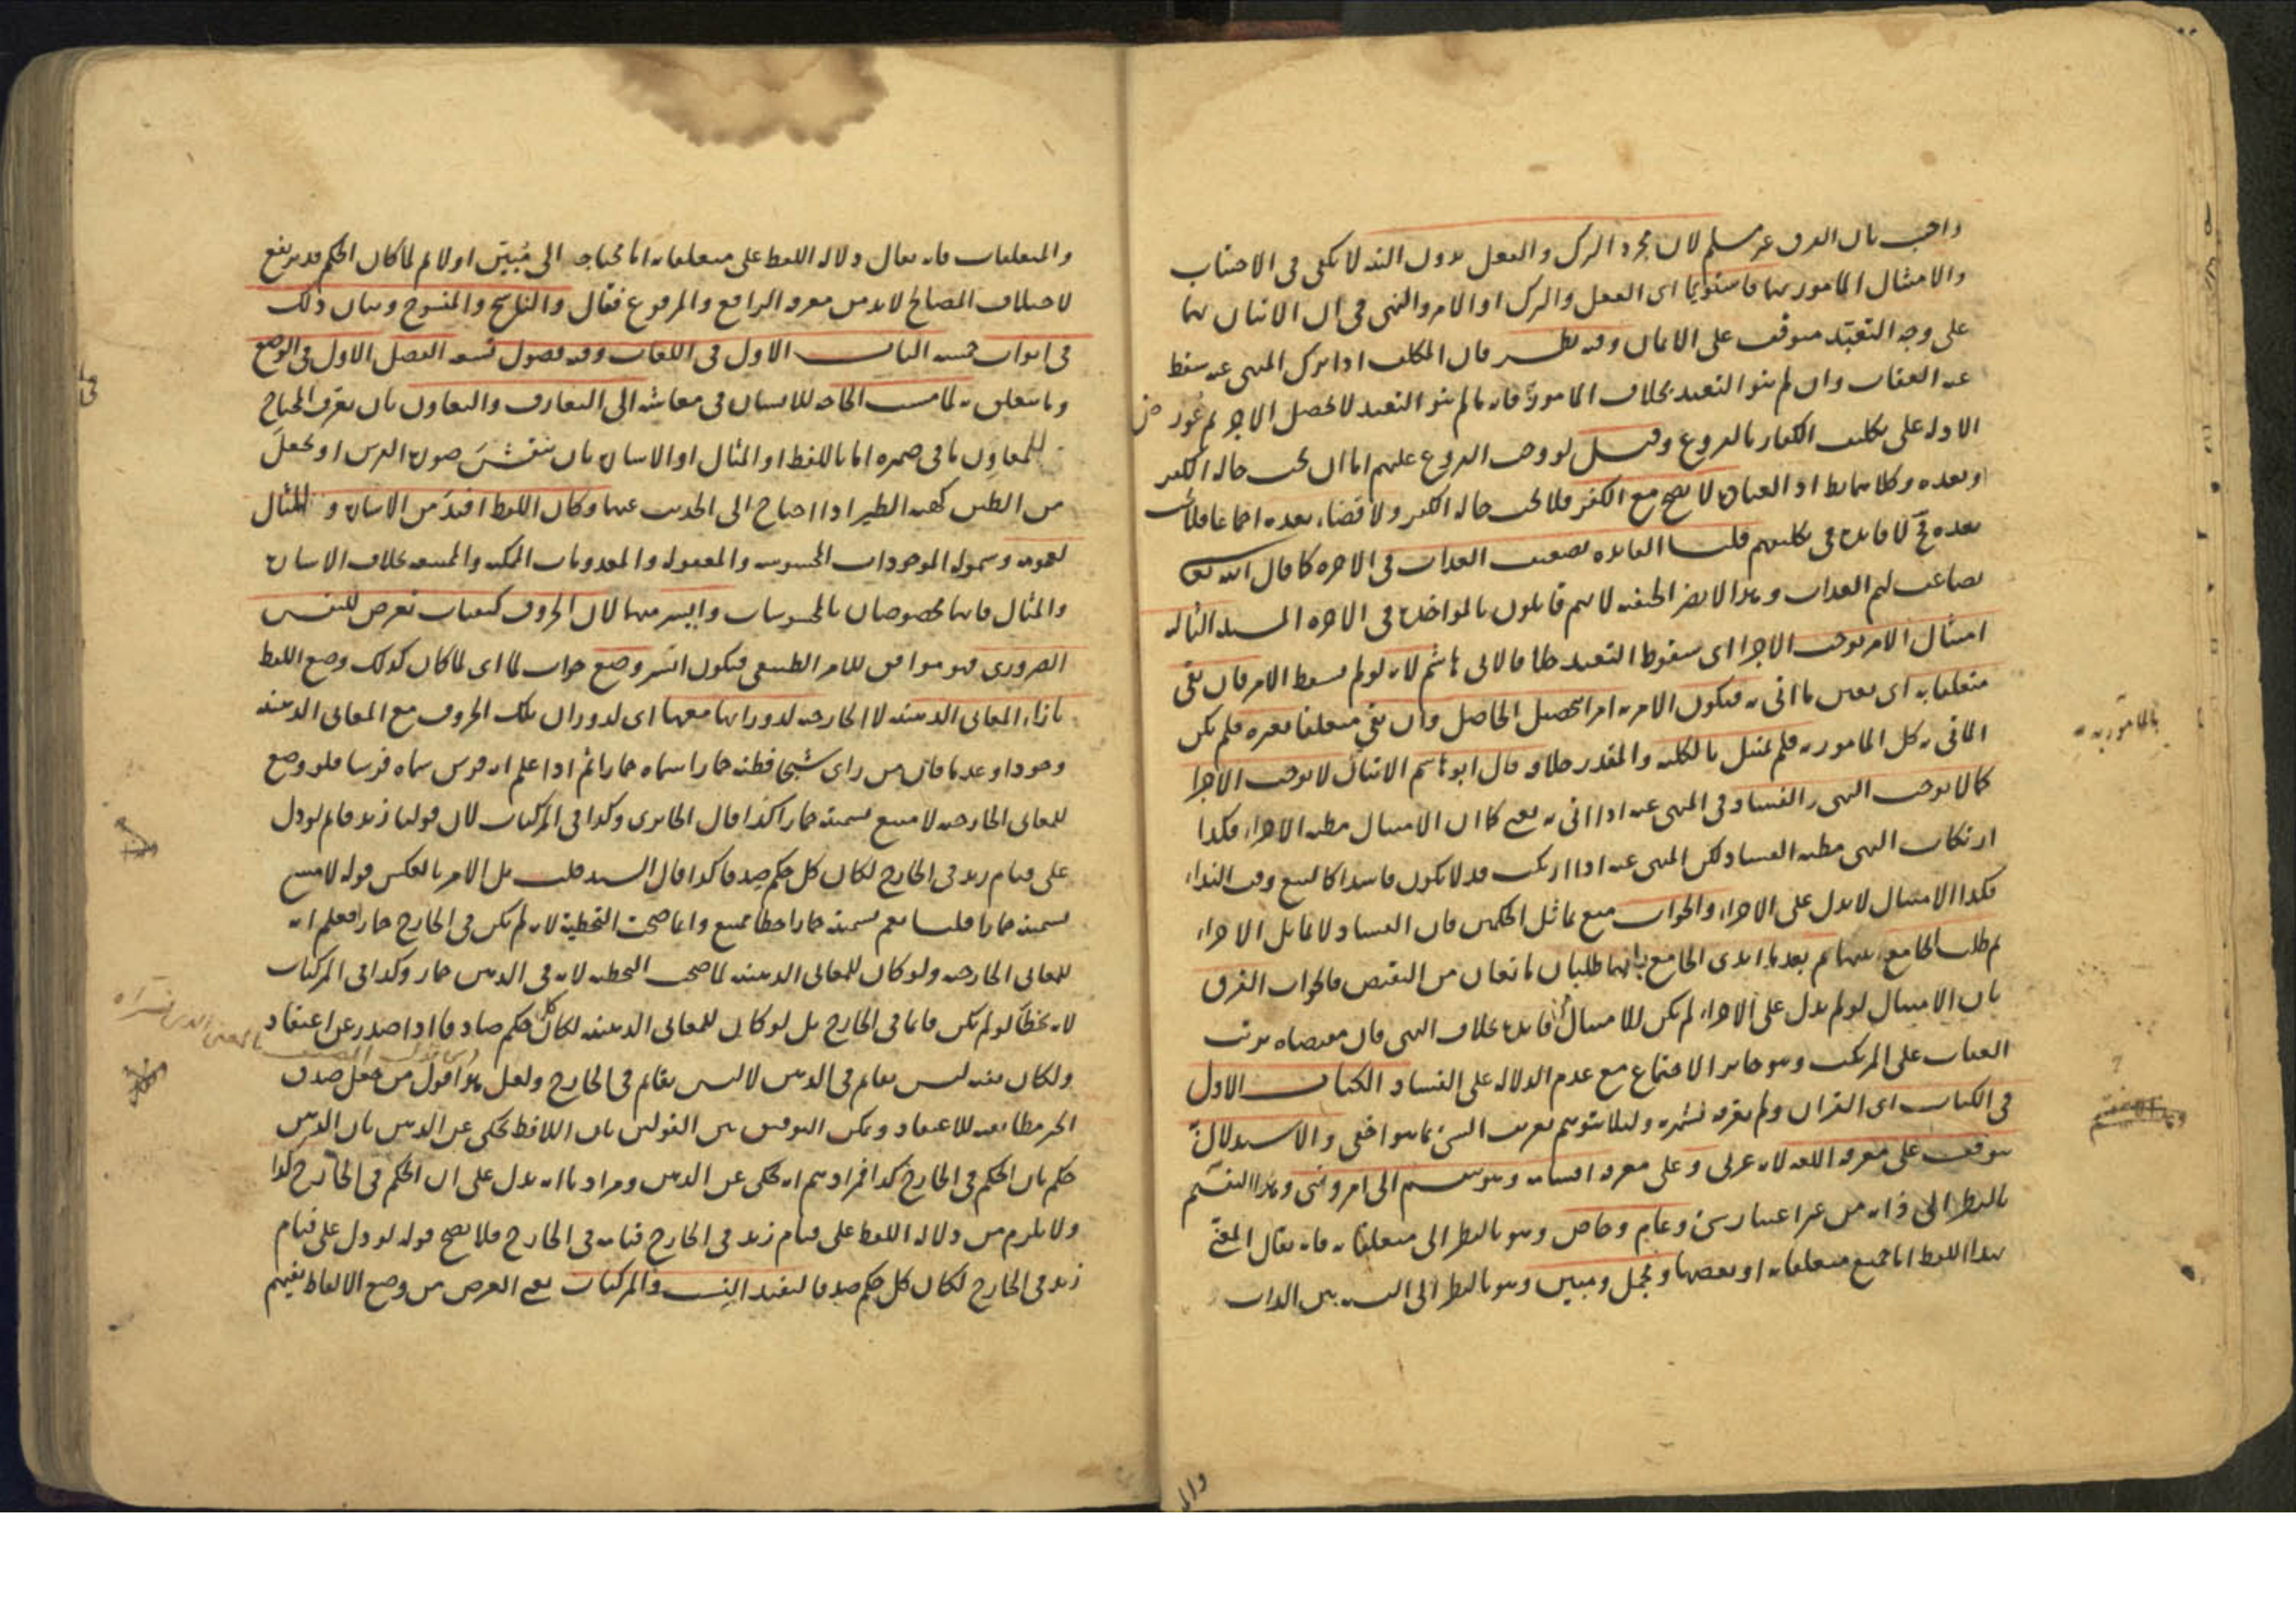 واجيب بان الفرق غير مسلم لان مجرد الترك والفعل بدون النية لا يكفى فى الاجتناب
والامتثال المامور بهما فاستويا اى الفعل والترك او الامر والنهى فى ان الاتيان بهما
على وجه التعبد متوقف على الايمان وفيه نظر فان المكلف اذا ترك المنهى عنه سقط
عنه العقاب وان لم ينو التعبد بخلاف المامور فانه ما لم ينو التعبد لا يحصل الاجر
الاول على تكليف الكفار بالفروع وقيل لو وجب الفروع عليهم اما ان يجب حالة الكفر
او بعده وكلاهما بط اذ العبادة لا يصح مع الكفر فلا يجب حالة الكفر ولا قضاء بعده اجماعا فلا يجب
بعده لا فايدة فى تكليفهم قلنا الفايدة تضعيف العذاب فى الاخرة كما قال الله تعالى
يضاعف لهم العذاب وهذا لا يضر الحنفية لانهم قايلون بالمواخذة فى الاخرة المسئلة الثالثة
امتثال الامر يوجب الاجزا اى سقوط التعبد خلافا لابى هاشم لانه لو لم يسقط الامر فان بقى
متعلقا به اى بعين ما اتى به فيكون الامر به امرا بتحصيل الحاصل وان بقى متعلقا بغيره فلم يكن
الماتى به كل المامور به فلم يمتثل بالكلية والمقدر خلافه قال ابو هاشم الامتثال لا يوجب الاجزا
كما لا يوجب النهى الفساد فى المنهى عنه اذا اتى به يعنى كما ان الامتثال مظنة الاجزاء فكذا
ارتكاب النهى مظنة الفساد لكن المنهى عنه اذا ارتكب قد لا يكون فاسدا كالبيع وقت النداء
فكذا الامتثال لا يدل على الاجزاء والجواب منع تماثل الحكمين فان الفساد لا يماثل الاجزاء
ثم طلب الجامع بينهما ثم بعد ما ابدى الجامع بانهما طلبان مانعان من النقيض فالجواب الفرق
بان الامتثال لو لم يدل على الاجزاء لم يكن للامتثال فايدة بخلاف النهى فان مقتضاه ترتب
العقاب على المرتكب وهو جايز الاجتماع مع عدم الدلالة على الفساد الكتاب الاول
فى الكتاب اى القران ولم يعرفه لشهرته ولئلا يتوهم تعريف الشئ بما هو اخفى والاستدلال به
يتوقف على معرفة اللغة لانه عربى وعلى معرفة اقسامه وهو ينقسم الى امر ونهى وهذا التقسيم
بالنظر الى ذاته من غير اعتبار شئ وعام وخاص وهو بالنظر الى متعلقاته فانه يقال المعنى
بهذا اللفظ اما جميع متعلقاته او بعضها ومجمل ومبين وهو بالنظر الى النسبة بين الذات
والـ
بالمامور به
والمتعلقات فانه يقال دلالة اللفظ على متعلقاته اما محتاجة الى مُبيّن او لا ثم لما كان الحكم قد يرتفع
لاختلاف المصالح لابد من معرفة الرافع والمرفوع فقال والناسخ والمنسوخ وبيان ذلك
فى ابواب خمسة الباب الاول فى اللغات وفيه فصول تسعة الفصل الاول فى الوضع
وما يتعلق به لما مست الحاجة للانسان فى معاشه الى التعارف والتعاون بان يعرف المحتاج
للمعاوِن ما فى ضميره اما باللفظ او المثال او الاشارة بان ينقش صورة الفرس او يجعل
من الطين كهيئة الطير اذا احتاج الى الحديث عنها وكان اللفظ افيدَ من الاشارة و المثال
لعمومه وشموله الموجودات المحسوسة والمعقولة والمعدومات الممكنة والممتنعة بخلاف الاشارة
والمثال فانهما مخصوصان بالمحسوسات وايسر منهما لان الحروف كيفيات تعرض للنفس
الضرورى فهو موافق للامر الطبيعى فيكون ايسر وضع جواب لما اى لما كان كذلك وضع اللفظ
بازاء المعانى الذهنية لا الخارجية لدورانها معها اى لدوران تلك الحروف مع المعانى الذهنية
وجودا وعدما فان من راى شبحا فظنه حمارا سماه حمارا ثم اذا علم انه فرس سماه فرسا فلو وضع
للمعانى الخارجية لامتنع تسميته حمارا كذا قال الجاربردى وكذا فى المركبات لان قولنا زيد قايم لو دل
على قيام زيد فى الخارج لكان كل حكم صدقا كذا قال السيد قلت بل الامر بالعكس قوله لامتنع
تسميته حمارا قلنا نعم تسميته حمارا خطأ ممتنع وانما صحت التخطية لانه لم يكن فى الخارج حمارا فعلم انه
للمعانى الخارجية ولو كان للمعانى الذهنية لما صحت التخطية لانه فى الذهن حمار وكذا فى المركبات
لانه يخطأ لو لم يكن قايما فى الخارج بل لو كان للمعانى الذهنية لكان كل حكم صادقا اذا صدر عن اعتقاد
ولكان معنه ليس بقايم فى الذهن لا ليس بقايم فى الخارج ولعل هذا قول من جعل صدق
الخبر مطابقته للاعتقاد ويمكن التوفيق بين القولين بان اللافظ يحكى عن الذهن بان الذهن
حكم بان الحكم فى الخارج كذا فمرادهم انه يحكى عن الذهن ومرادنا انه يدل على ان الحكم فى الخارج كذا
ولا يلزم من دلالة اللفظ على قيام زيد فى الخارج قيامه فى الخارج فلا يصح قوله لو دل على قيام
زيد فى الخارج لكان كل حكم صدقا ليفيد النسب والمركبات يعنى الغرض من وضع الالفاظ تفهيم